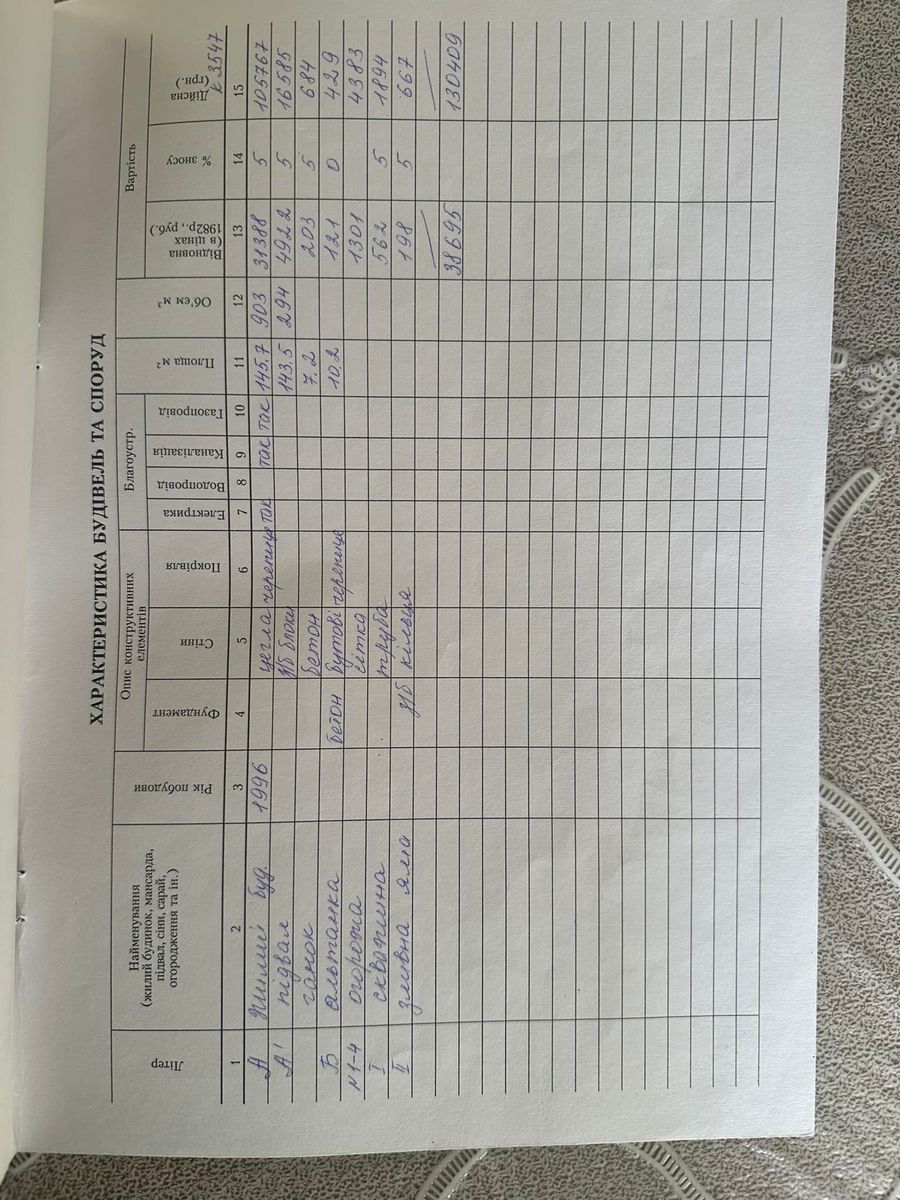 ХАРАКТЕРИСТИКА БУДІВЕЛЬ ТА СПОРУД
Літер
Найменування
(жилий будинок, мансарда,
підвал, сіни, сарай,
огородження та ін.)
Рік побудови
Опис конструктивних
елементів
Фундамент
Стіни
Покрівля
Благоустр.
Електрика
Водопровід
Каналізація
Газопровід
Площа м²
Об'єм м³
Вартість
Відновна
(в цінах
1982р., руб.)
% зносу
Дійсна
(грн.)
к 3547
1 2 3 4 5 6 7 8 9 10 11 12 13 14 15
А жилий буд. 1996 цегла черепиця так так так 145.7 903 31388 5 105767
А' підвал з/б блоки 143.5 294 4922 5 16585
ганок бетон 7.2 203 5 684
Б альтанка бетон бутові черепиця 10.2 121 0 429
N1-4 огорожа сітка 1301 4383
I скважина труба 562 5 1894
II зливна яма з/б кільця 198 5 667
38695 130409